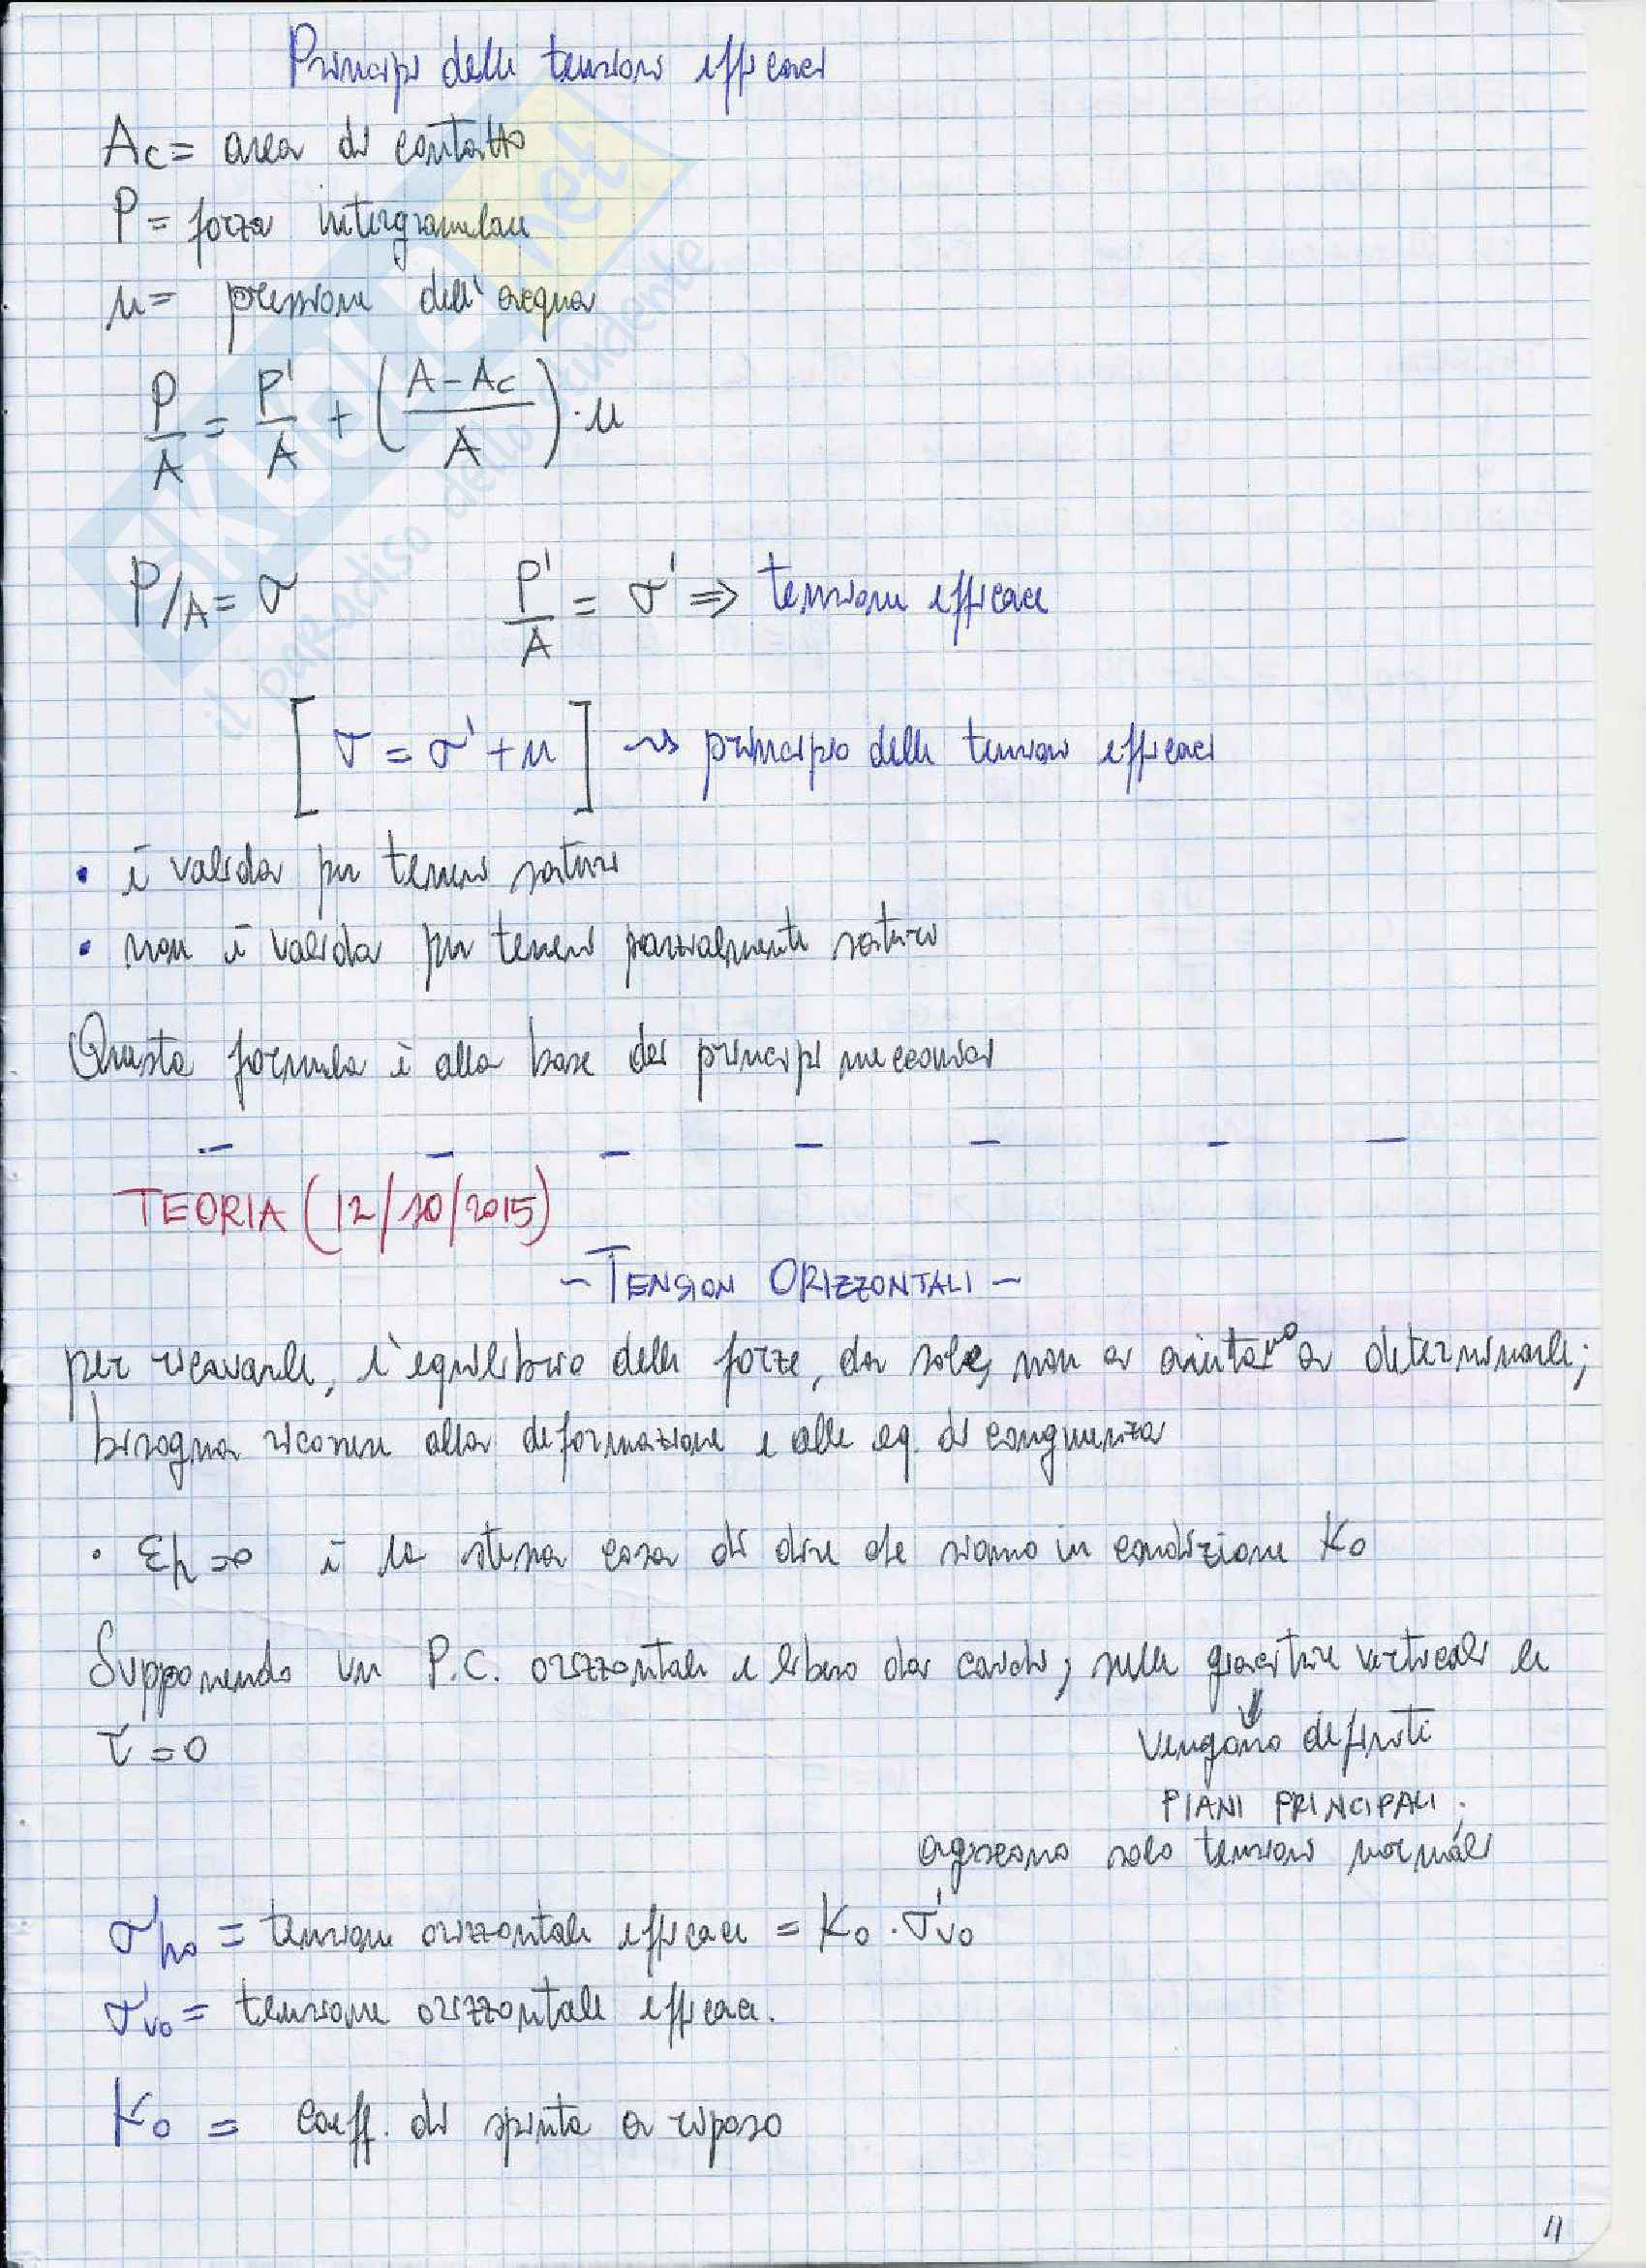 Principi delle tensioni efficaci
Ac = area di contatto
P = forza intergranulare
u = pressione dell'acqua
P/A = P'/A + ((A - Ac)/A) · u
P/A = σ    P'/A = σ' ⇒ tensione efficace
[σ = σ' + u] ~> principio delle tensioni efficaci
• è valida per terreni saturi
• non è valida per terreni parzialmente saturi
Questa formula è alla base dei principi meccanici
– – – – – – –
TEORIA (12/10/2015)
- TENSIONI ORIZZONTALI -
per ricavarle, l'equilibrio delle forze, da solo, non ci aiutano a determinarle;
bisogna ricorrere alla deformazione e alle eq. di congruenza
• εh = 0 è la stessa cosa di dire che siamo in condizione K0
Supponendo un P.C. orizzontale e libero da carichi, sulle giaciture verticali le
τ = 0
⇓
vengono definiti
PIANI PRINCIPALI.
agiscono solo tensioni normali
σ'h0 = tensione orizzontale efficace = K0 · σ'v0
σ'v0 = tensione orizzontale efficace.
K0 = coeff. di spinta a riposo
11
SKUOLA.net
il paradiso dello studente